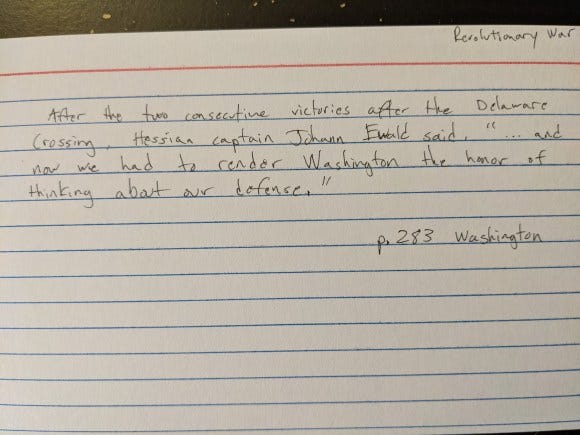 Revolutionary War
After the two consecutive victories after the Delaware
Crossing, Hessian captain Johann Ewald said, "... and
now we had to render Washington the honor of
thinking about our defense."
p. 283 Washington